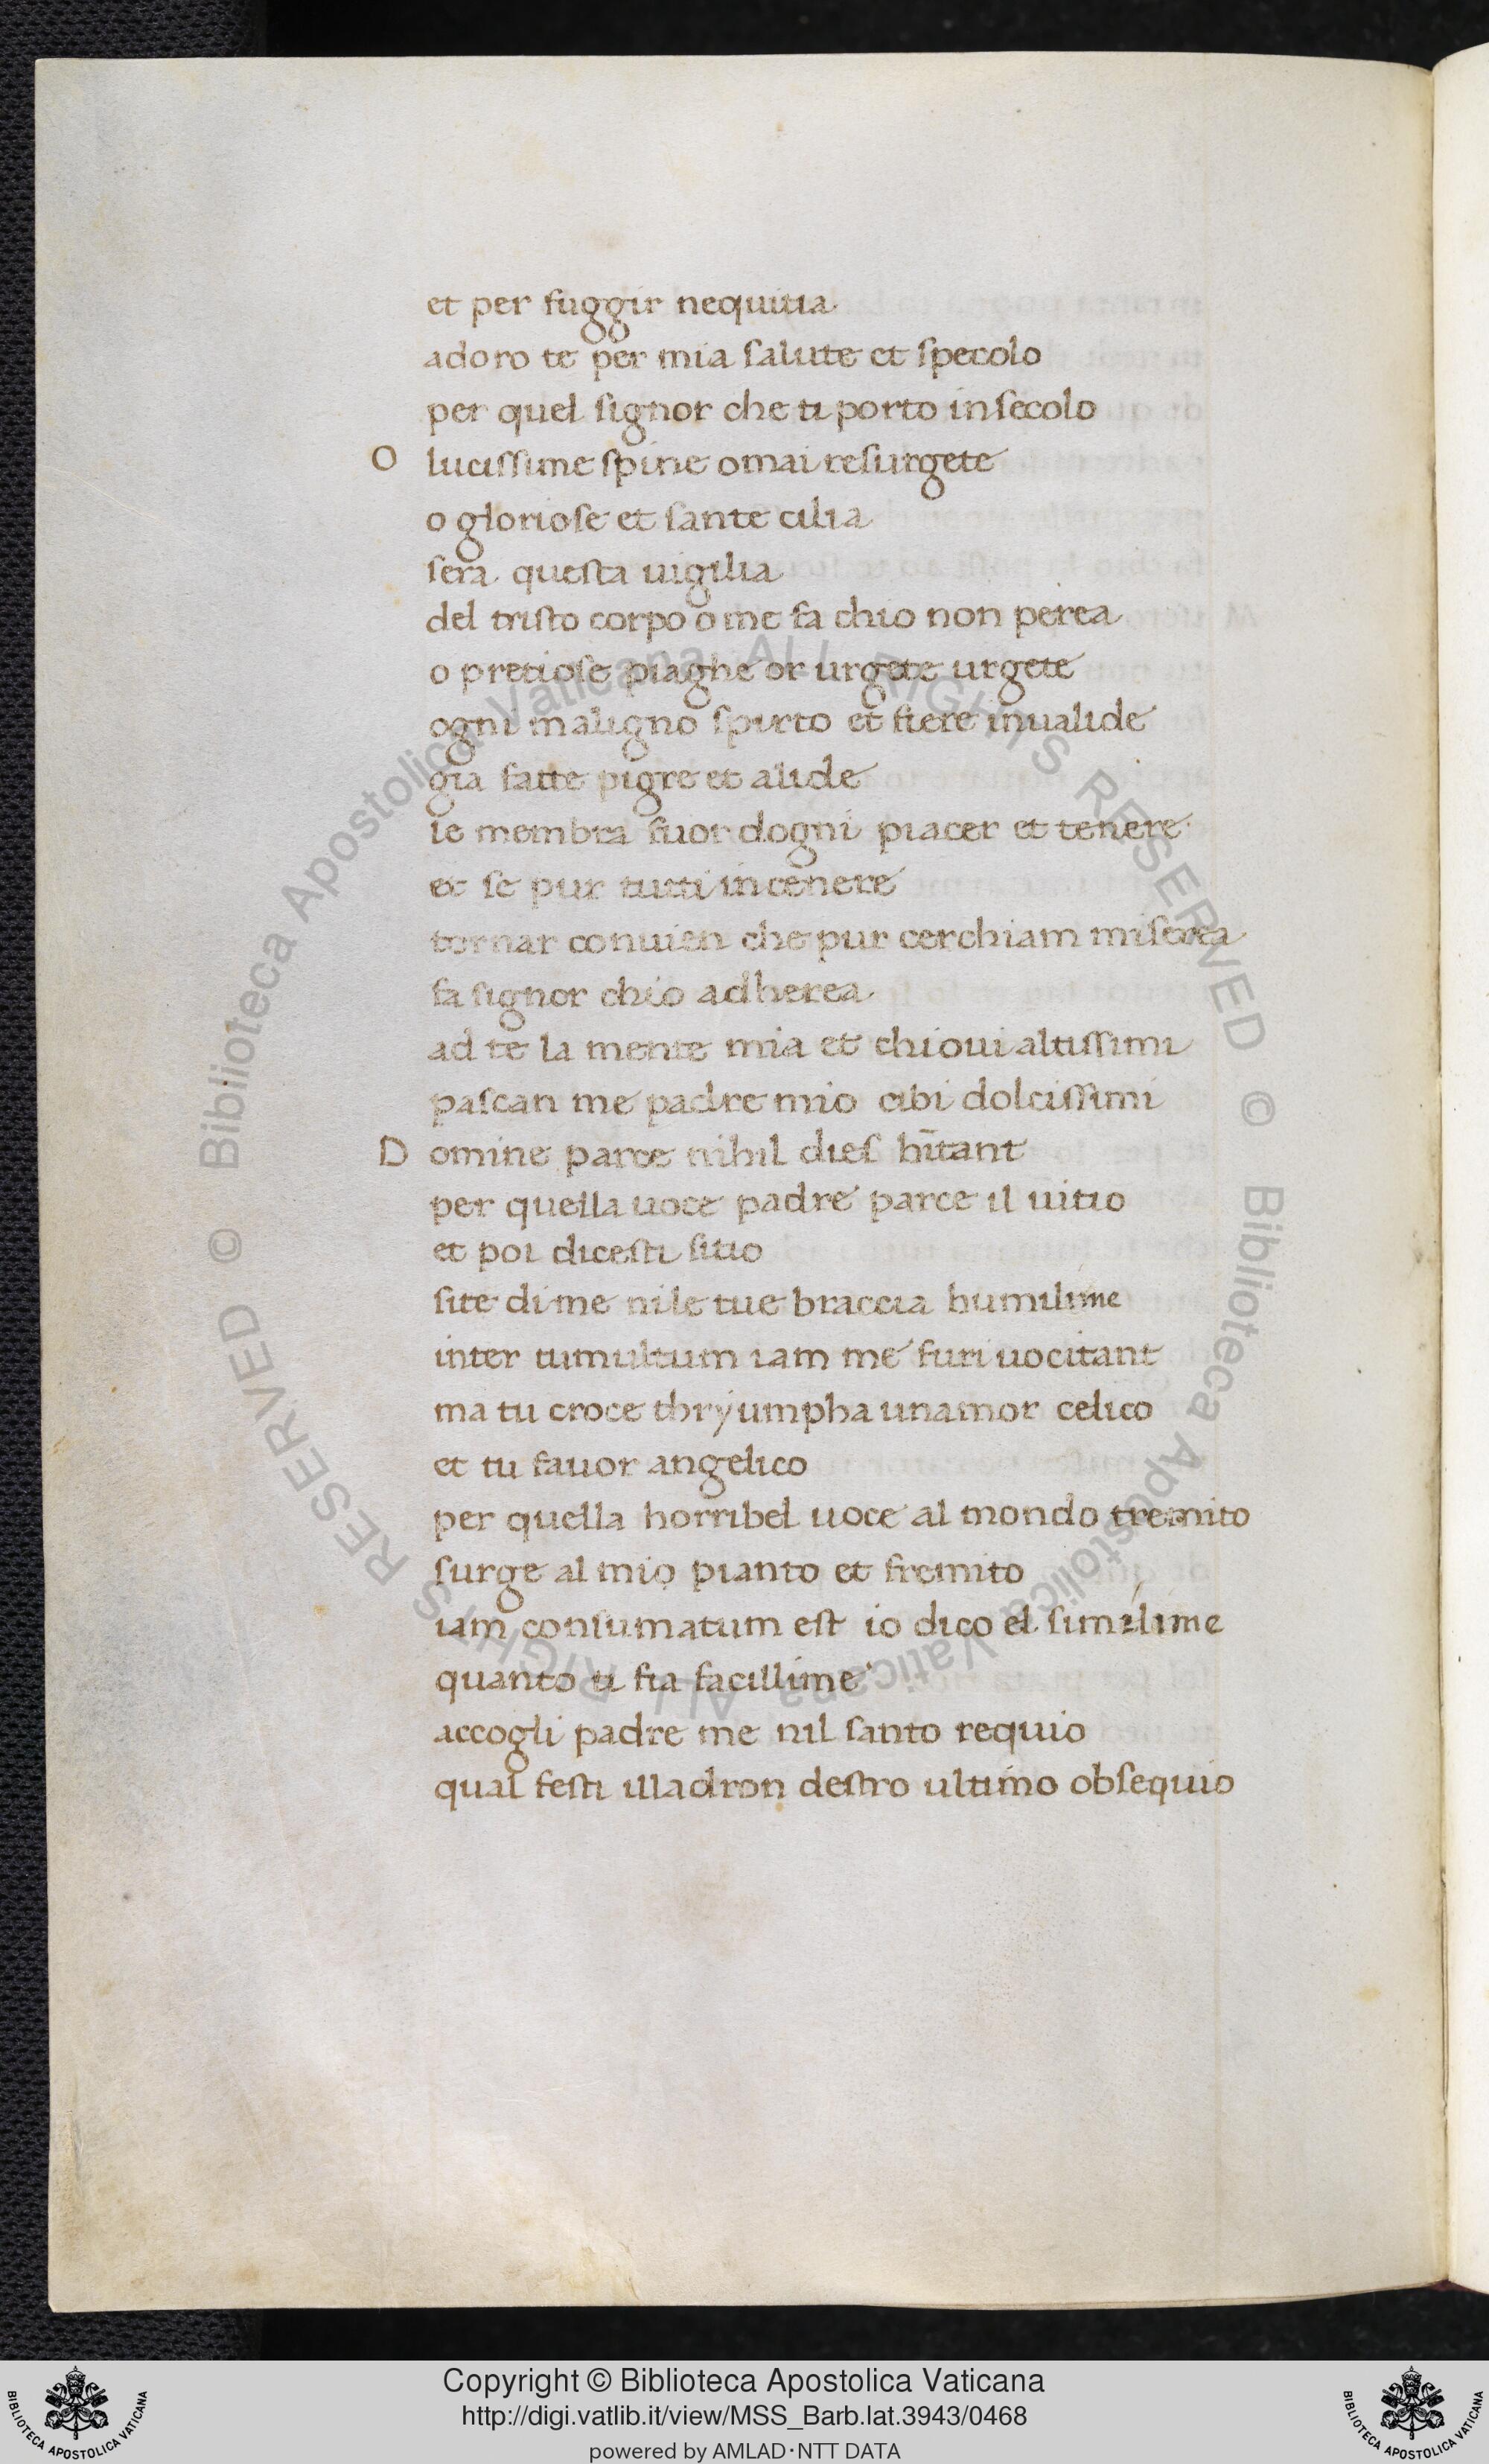 et per fuggir nequitia
adoro te per mia salute et specolo
per quel signor che ti porto in secolo
O lucissime spine omai resurgete
o gloriose et sante cilia
sera questa uigilia
del tristo corpo o me fa chio non perea
o pretiose piaghe or urgete urgete
ogni maligno spirto et fiere inualide
gia fatte pigre et alide
le membra fuor dogni piacer et tenere
et se pur tutti in cenere
tornar conuien che pur cerchiam miserea
fa signor chio adherea
ad te la mente mia et chioui altissimi
pascan me padre mio cibi dolcissimi
D omine parce nihil dies hītant
per quella uoce padre parce il uitio
et poi dicesti sitio
site di me ni le tue braccia humilime
inter tumultum iam me furi uocitant
ma tu croce thryumpha un amor celico
et tu fauor angelico
per quella horribel uoce al mondo tremito
surge al mio pianto et fremito
iam consumatum est io dico el similime
quanto ti fia facillime
accogli padre me nil santo requio
qual festi illadron destro ultimo obsequio
© Biblioteca Apostolica Vaticana ALL RIGHTS RESERVED © Biblioteca Apostolica Vaticana ALL RIGHTS RESERVED
BIBLIOTECA APOSTOLICA VATICANA
Copyright © Biblioteca Apostolica Vaticana
http://digi.vatlib.it/view/MSS_Barb.lat.3943/0468
powered by AMLAD·NTT DATA
BIBLIOTECA APOSTOLICA VATICANA